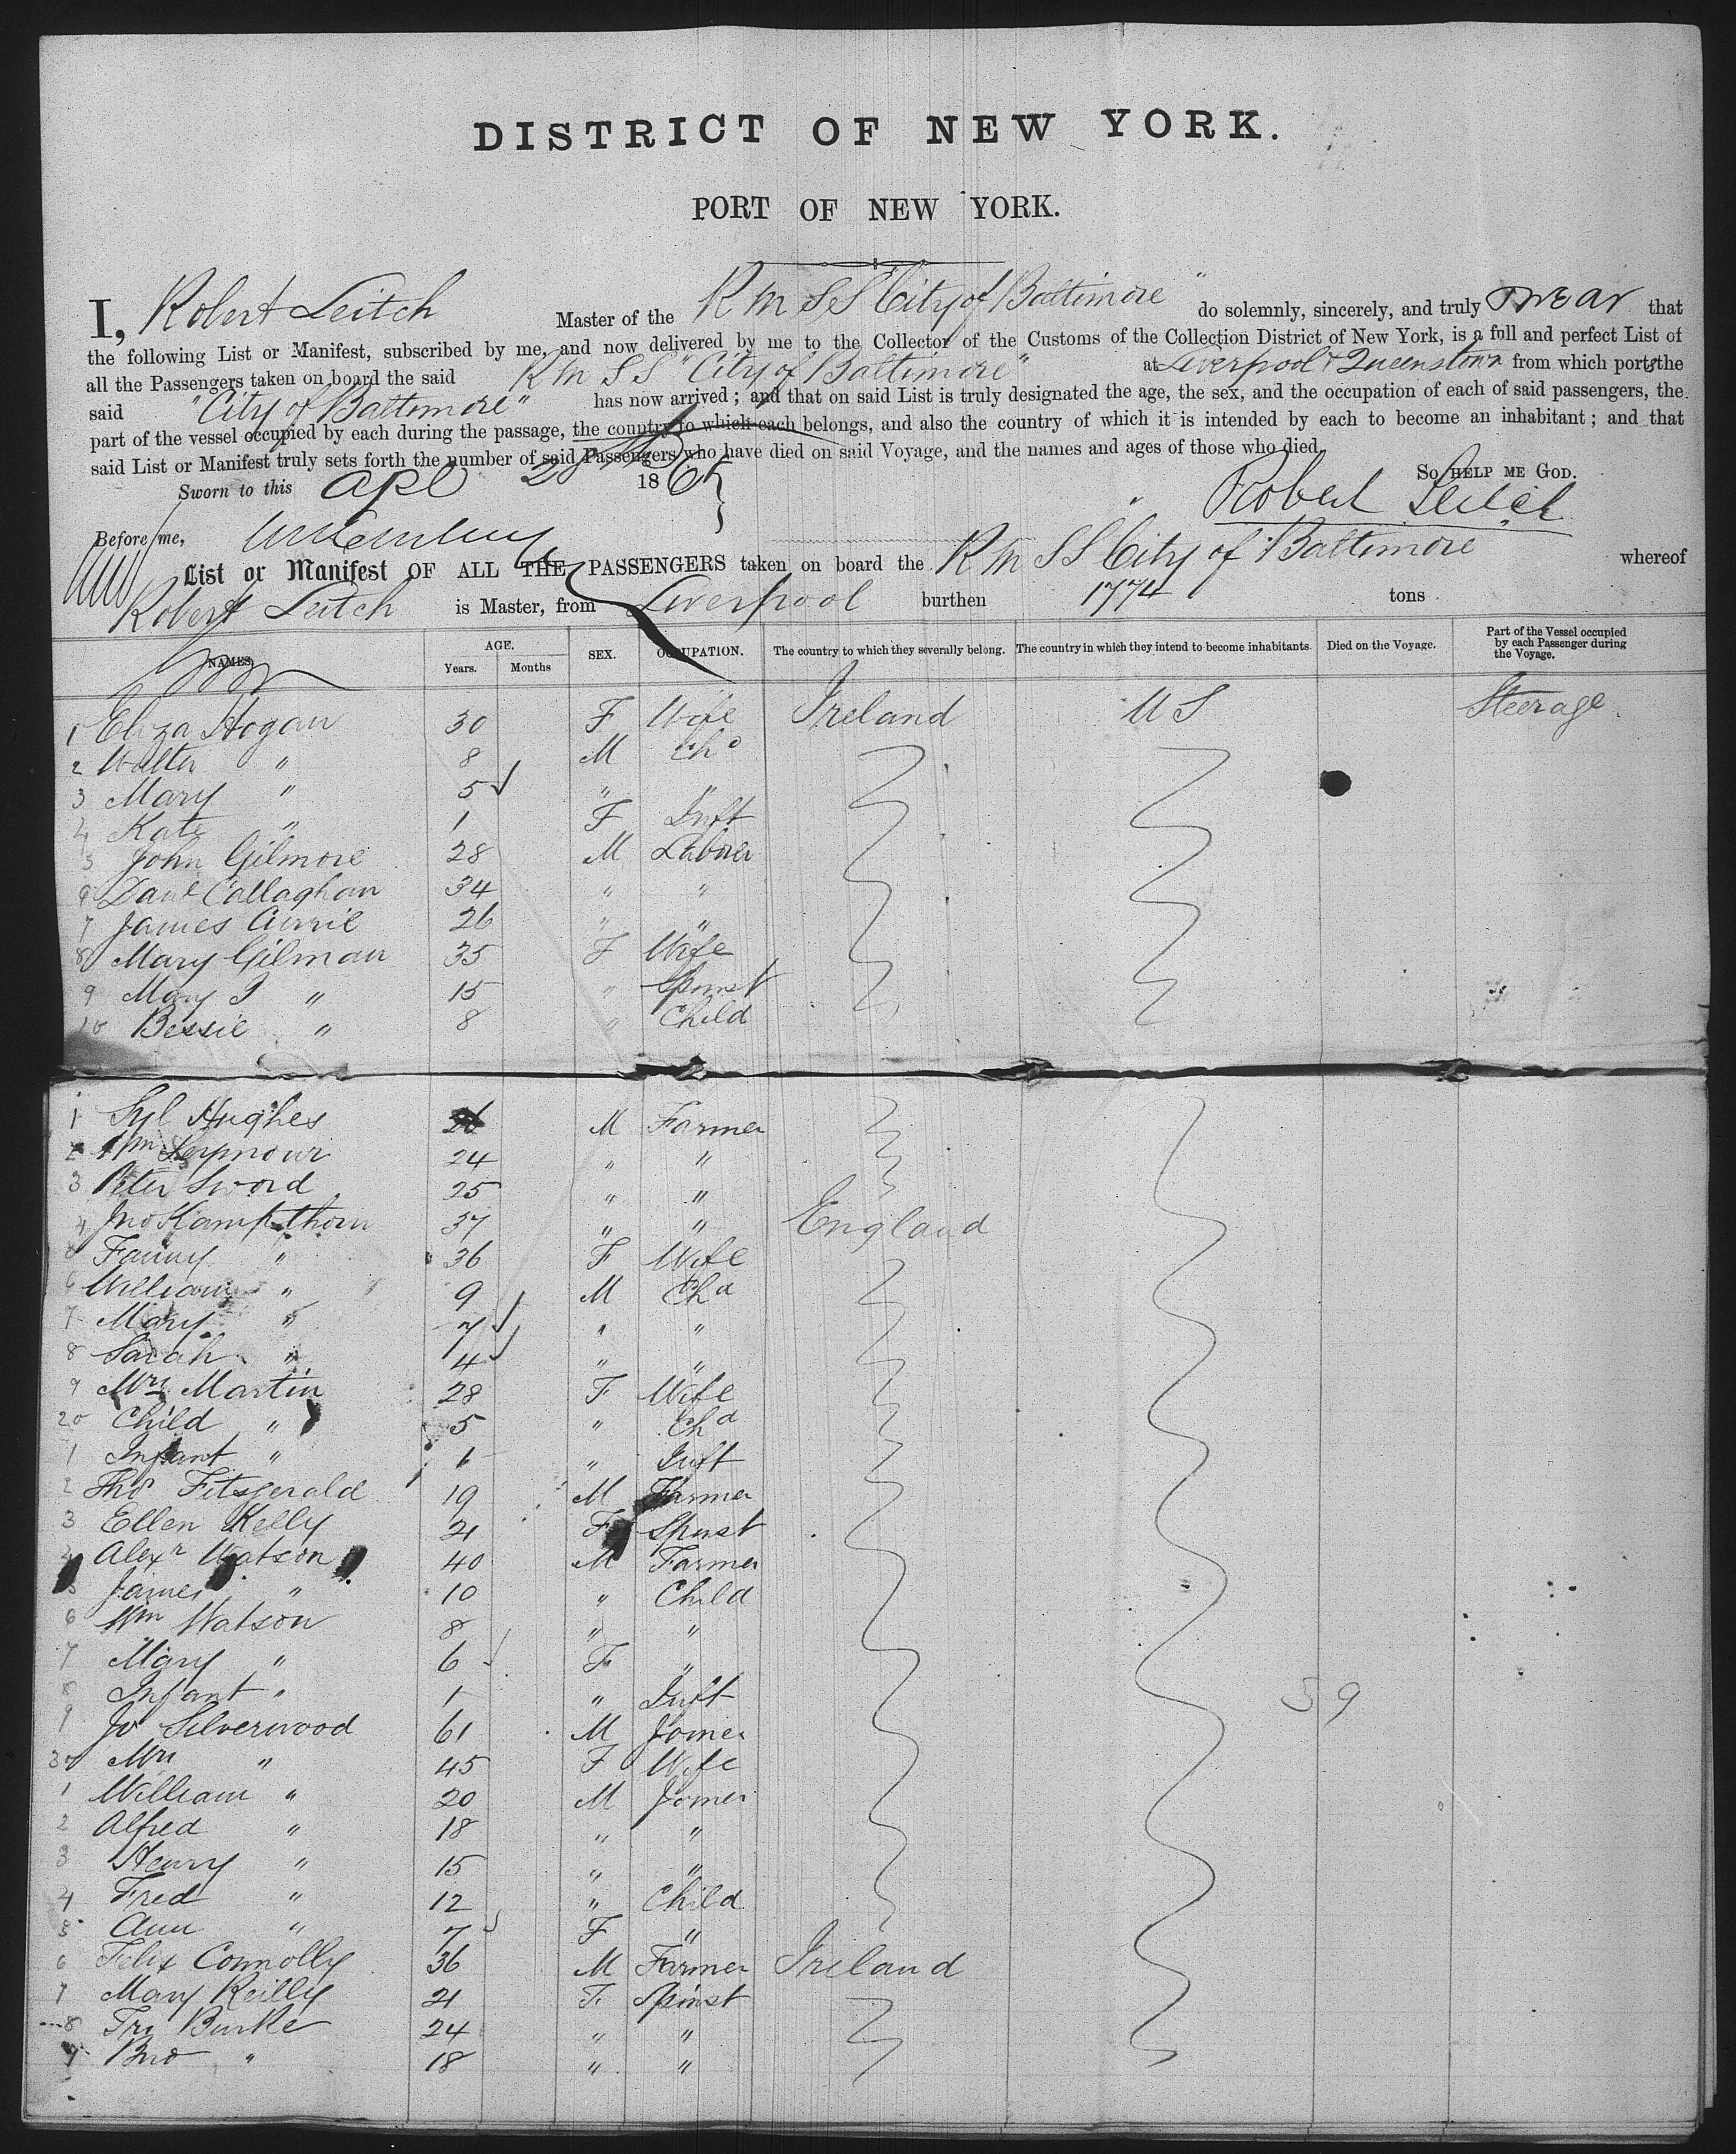 DISTRICT OF NEW YORK.
PORT OF NEW YORK.
I, Robert Leitch Master of the R M S S "City of Baltimore" do solemnly, sincerely, and truly swear that
the following List or Manifest, subscribed by me, and now delivered by me to the Collector of the Customs of the Collection District of New York, is a full and perfect List of
all the Passengers taken on board the said R M S S "City of Baltimore" at Liverpool & Queenstown from which ports the
said "City of Baltimore" has now arrived; and that on said List is truly designated the age, the sex, and the occupation of each of said passengers, the
part of the vessel occupied by each during the passage, the country to which each belongs, and also the country of which it is intended by each to become an inhabitant; and that
said List or Manifest truly sets forth the number of said Passengers who have died on said Voyage, and the names and ages of those who died.
So help me God.
Sworn to this Apl 1865
Robert Leitch
Before me,
List or Manifest OF ALL THE PASSENGERS taken on board the R M S S City of Baltimore whereof
Robert Leitch is Master, from Liverpool burthen 1774 tons
NAMES. AGE. Years. Months SEX. OCCUPATION. The country to which they severally belong. The country in which they intend to become inhabitants. Died on the Voyage. Part of the Vessel occupied by each Passenger during the Voyage.
1 Eliza Hogan 30 F Wife Ireland U S Steerage
2 Walter " 8 M Chd
3 Mary " 5 " "
4 Kate " 1 F Inft
5 John Gilmore 28 M Laborer
6 Danl Callaghan 34 " "
7 James Currie 26 " "
8 Mary Gilman 35 F Wife
9 Mary J " 15 " Spinst
10 Bessie " 8 " Child
1 Syl Hughes M Farmer
2 Wm Seymour 24 " "
3 Peter Sword 25 " "
4 Jno Kampthorn 37 " " England
5 Fanny " 36 F Wife
6 William " 9 M Chd
7 Mary " 7 " "
8 Sarah " 4 " "
9 Mrs Martin 28 F Wife
20 Child " 5 " Chd
1 Infant " 1 " Inft
2 Thos Fitzgerald 19 M Farmer
3 Ellen Kelly 21 F Spinst
4 Alexr Watson 40 M Farmer
5 James " 10 " Child
6 Wm Watson 8 " "
7 Mary " 6 F "
8 Infant " 1 " Inft 59
9 Jo Silverwood 61 M Joiner
30 Mrs " 45 F Wife
1 William " 20 M Joiner
2 Alfred " 18 " "
3 Henry " 15 " "
4 Fred " 12 " Child
5 Ann " 7 F "
6 Felix Connolly 36 M Farmer Ireland
7 Mary Reilly 21 F Spinst
8 Burke 24 " "
9 " 18 " "